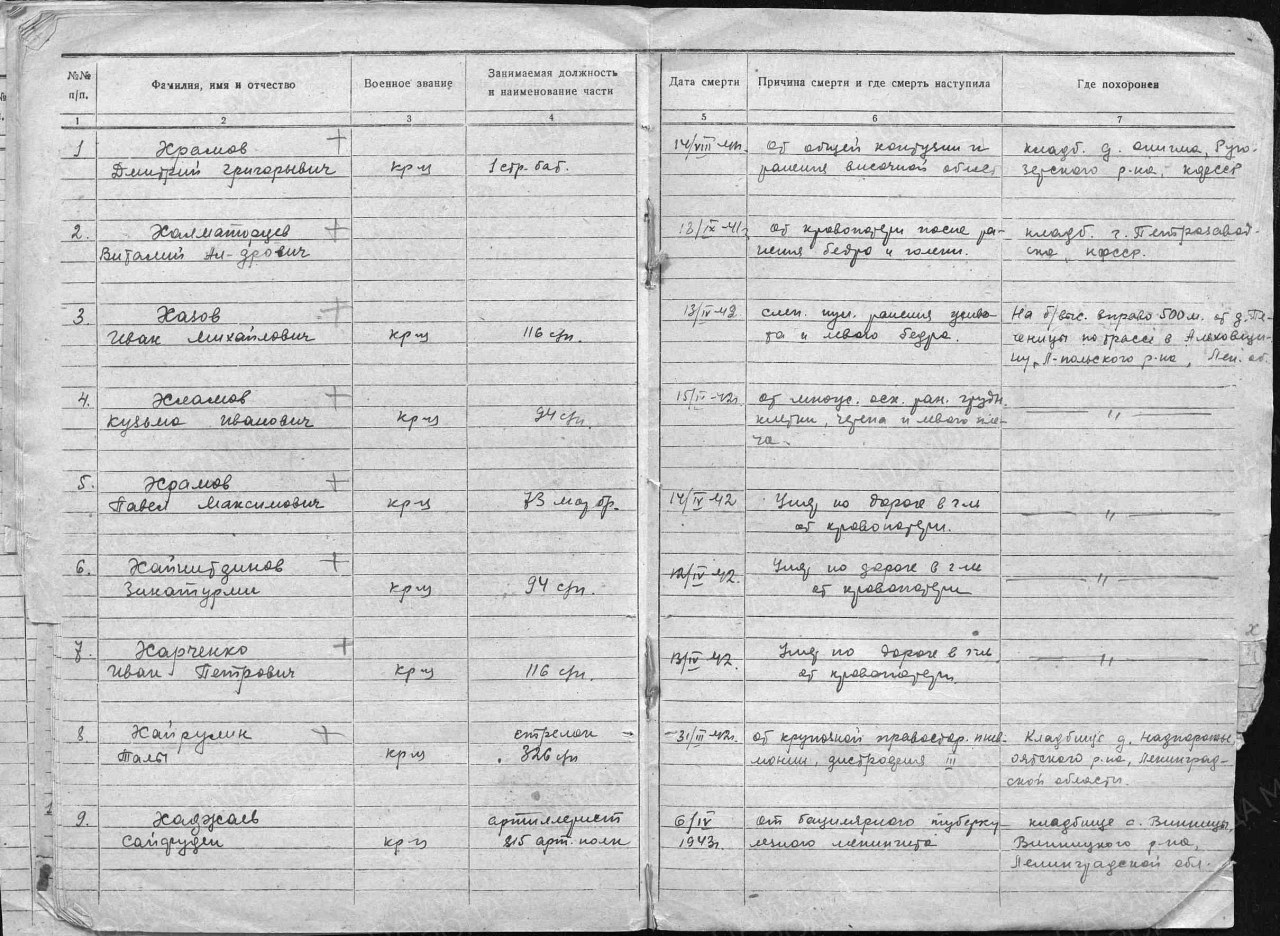 №№ п/п.
Фамилия, имя и отчество
Военное звание
Занимаемая должность и наименование части
Дата смерти
Причина смерти и где смерть наступила
Где похоронен
1 2 3 4 5 6 7
1 Храмов + 14/VIII 41г. От общей контузии и кладб. д.
Дмитрий Григорьевич кр-ц 1 стр. бат. ранения височной област р-на,
2. + /IX-41г от кровопотери после ра- кладб. г. Петрозавод-
Виталий Ал-дрович нения бедра и голени. ска,
3. Хазов + 13/IV-42 слеп. пул. ранения живо- На б/выс. вправо 500 м. от д.
Иван Михайлович кр-ц 116 сп. та и левого бедра. по трассе в
р-на, Лен. об.
4. + 15/IV-42г. от множ. оск. ран. грудн. — " —
Кузьма Иванович кр-ц 94 сп. клетки, черепа и левого пле-
ча.
5. Храмов + 14/IV-42 Умер по дороге в г-ль — " —
Павел Максимович кр-ц 73 от кровопотери.
6. + 12/IV-42. Умер по дороге в г-ль — " —
кр-ц 94 сп. от кровопотери
7. Харченко + 13/IV-42. Умер по дороге в г-ль — " —
Иван Петрович кр-ц 116 сп. от кровопотери.
8. Хайрулин + стрелок 31/III-42г. от крупозной правостор. пнев- Кладбище д. Надпорожье
кр-ц 326 сп монии, дистрофия III Оятского р-на, Ленинград-
ской области
9. Хаджаев артиллерист 6/IV от бацилярного туберку- кладбище с. Винницы,
кр-ц 815 арт. полк 1943г. лезного менингита Винницкого р-на,
Ленинградской обл.